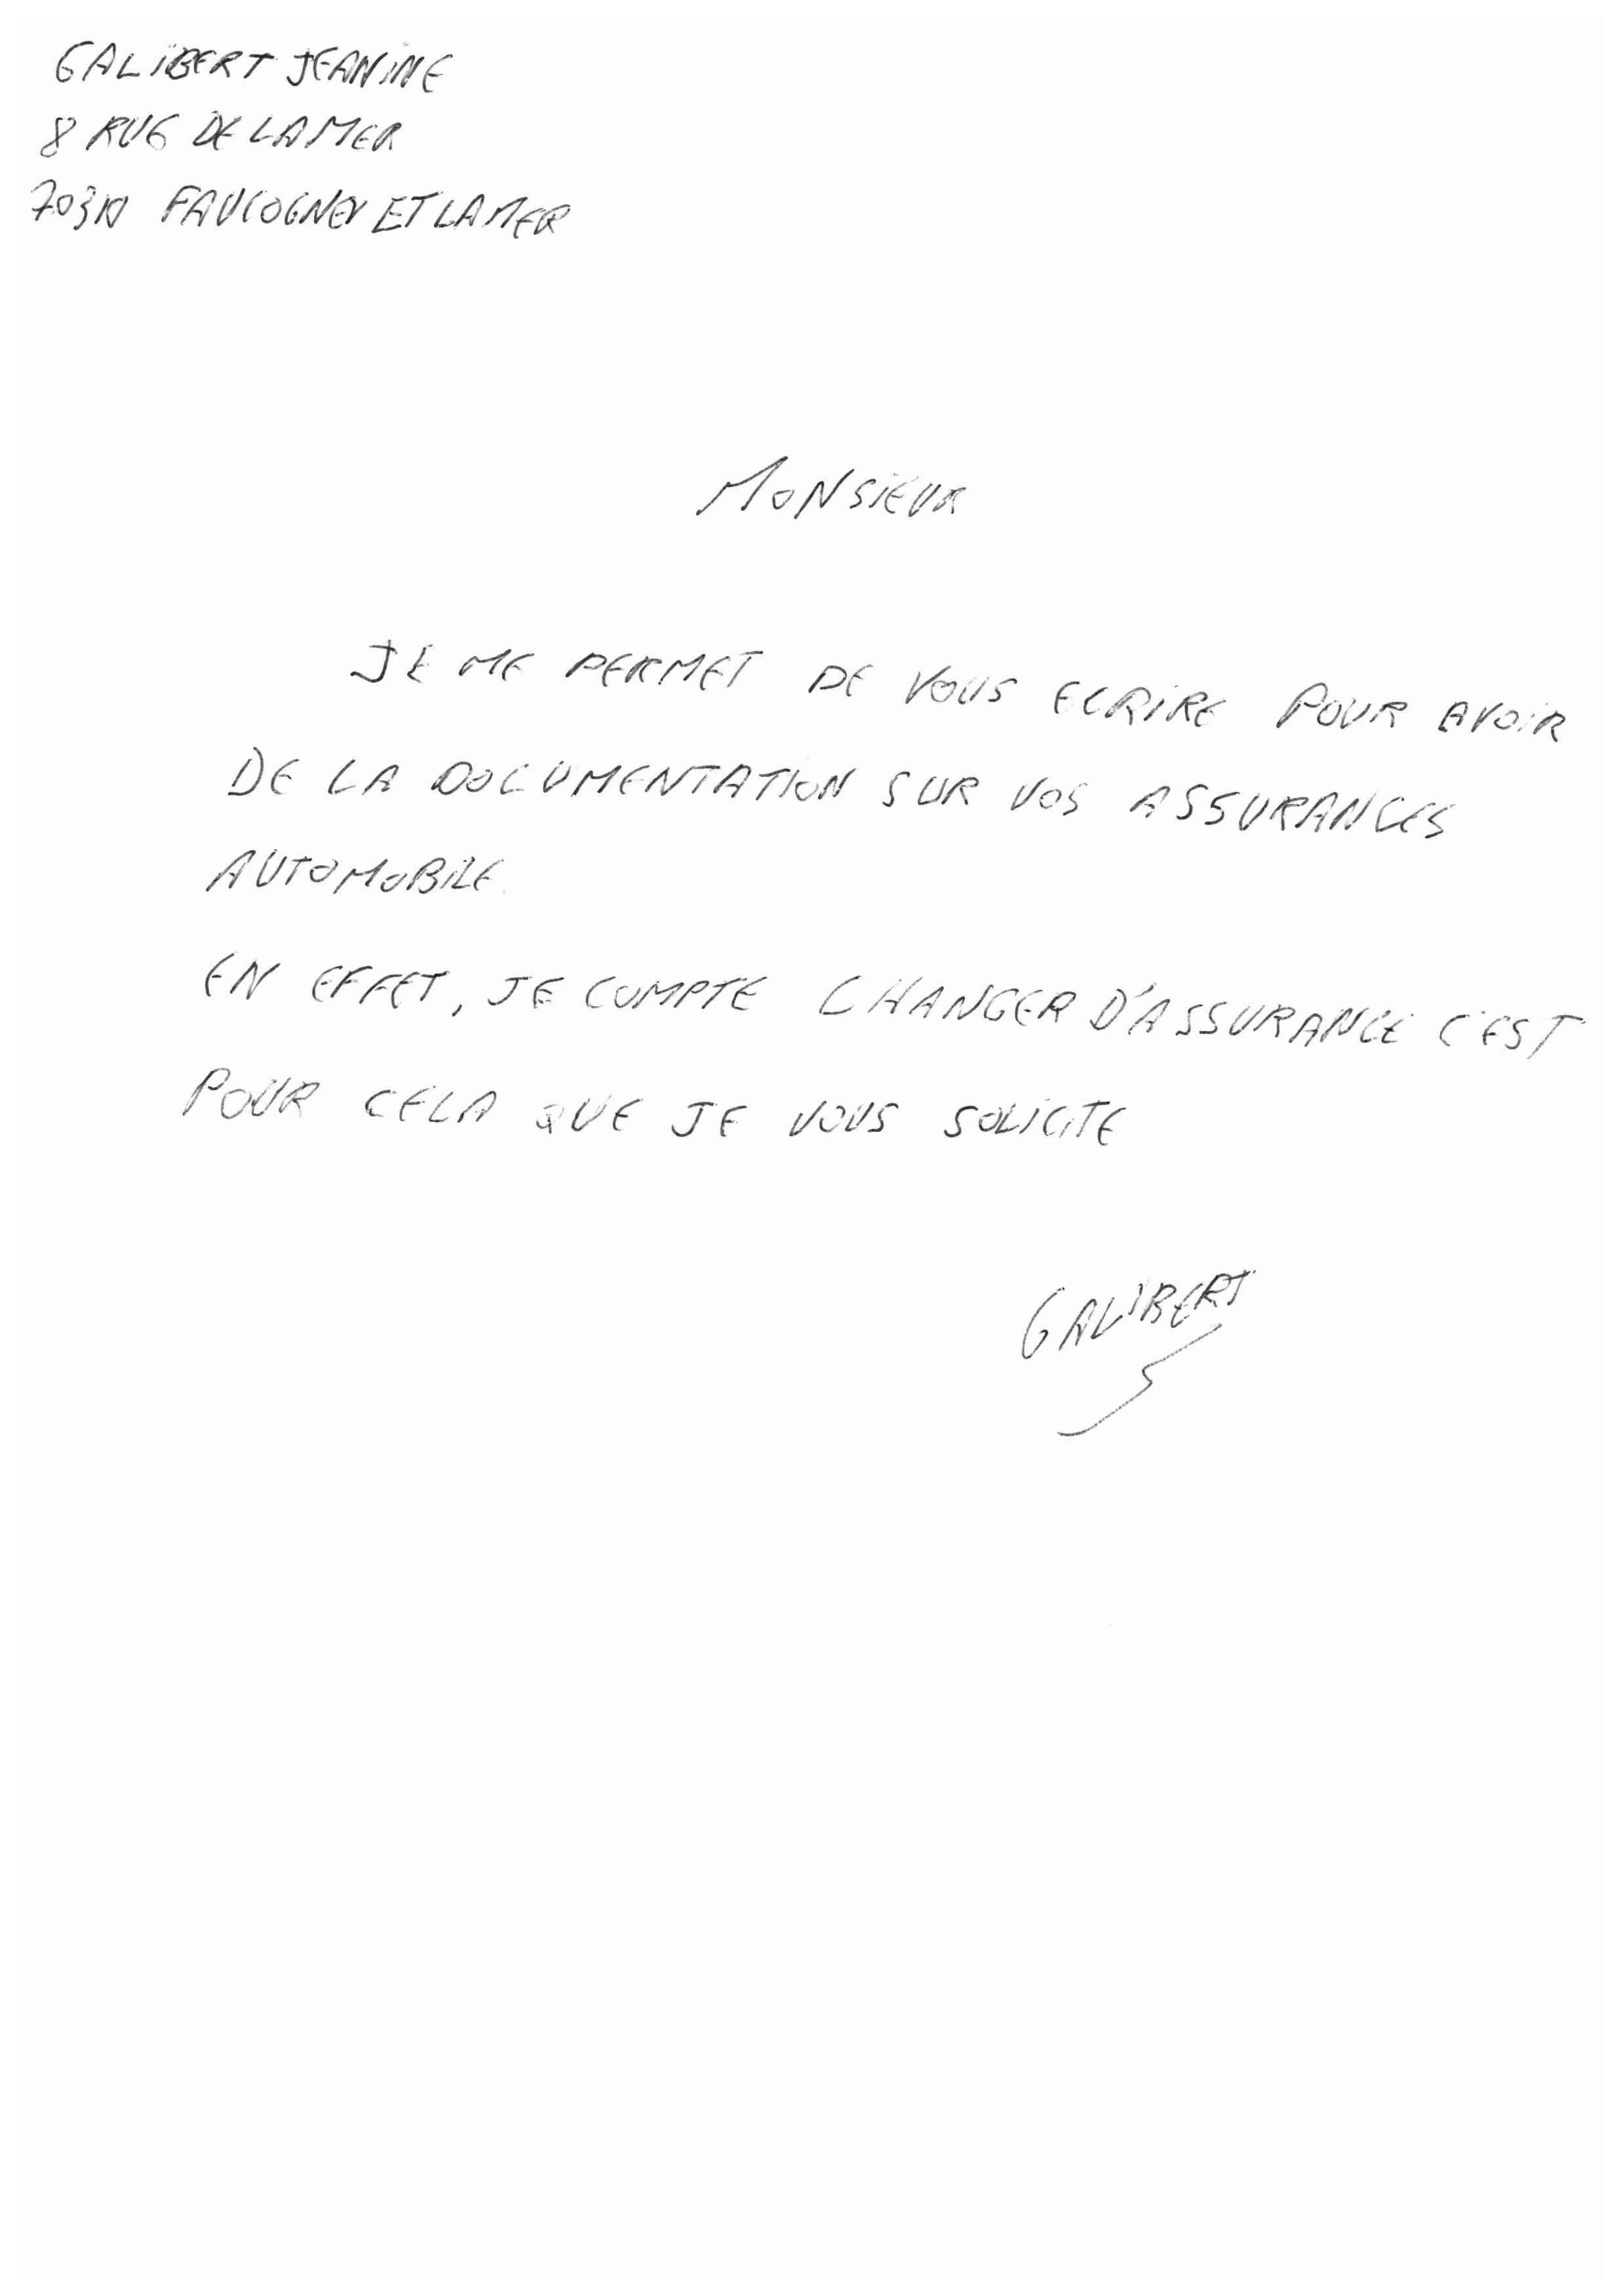 GALIBERT JEANINE
8 RUE DE LA MER
70310 FAUCOGNEY ET LA MER
MONSIEUR
JE ME PERMET DE VOUS ECRIRE POUR AVOIR
DE LA DOCUMENTATION SUR VOS ASSURANCES
AUTOMOBILE.
EN EFFET, JE COMPTE CHANGER D'ASSURANCE C'EST
POUR CELA QUE JE VOUS SOLICITE
GALIBERT